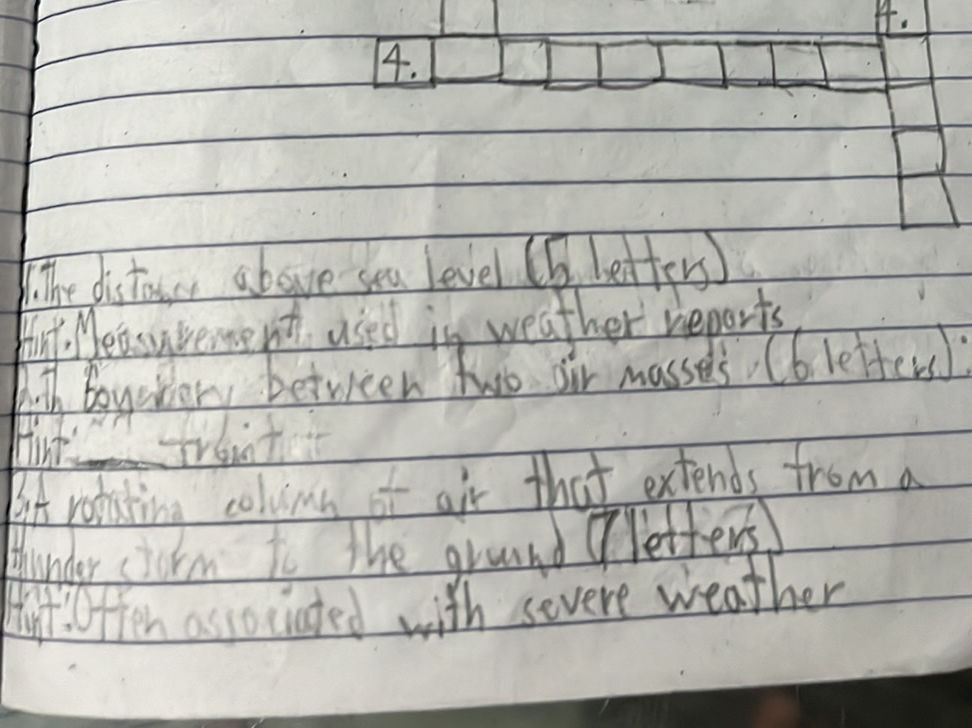 4.
4.
1.The distance above sea level (5 letters)
Hint:Measurement used in weather reports
between two air masses (6 letters):
Hint: ____ front
3.A rotating column of air that extends from a
thunder storm to the ground (7 letters)
Hint:Often associated with severe weather